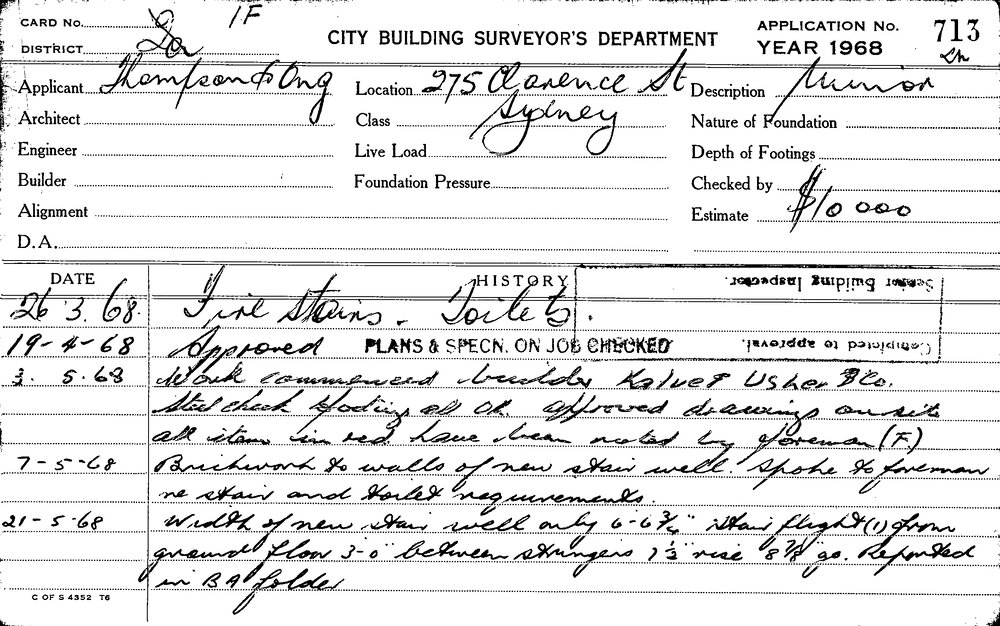 CARD No. 2a 1F
DISTRICT
CITY BUILDING SURVEYOR'S DEPARTMENT
APPLICATION No. 713
YEAR 1968
Applicant Thompson & Ong
Location 275 Clarence St
Sydney
Description Minor
Architect
Class
Nature of Foundation
Engineer
Live Load
Depth of Footings
Builder
Foundation Pressure
Checked by
Alignment
Estimate $10 000
D.A.
DATE HISTORY
Senior Building Inspector.
26 3. 68. Fire Stairs. Toilets.
19-4-68 Approved PLANS & SPECN. ON JOB CHECKED
Completed to approval.
3. 5.68 Work commenced builder Kalnet Usher & Co.
Steel check footing all OK. approved drawings on site
all items in red have been noted by foreman (F)
7-5-68 Brickwork to walls of new stair well. Spoke to foreman
re stair and toilet requirements.
21-5-68 Width of new stair well only 6-6¾" stair flight (1) from
ground floor 3-0" between stringers 7½" rise 8⅞" go. Reported
in BA folder
C OF S 4352 T6